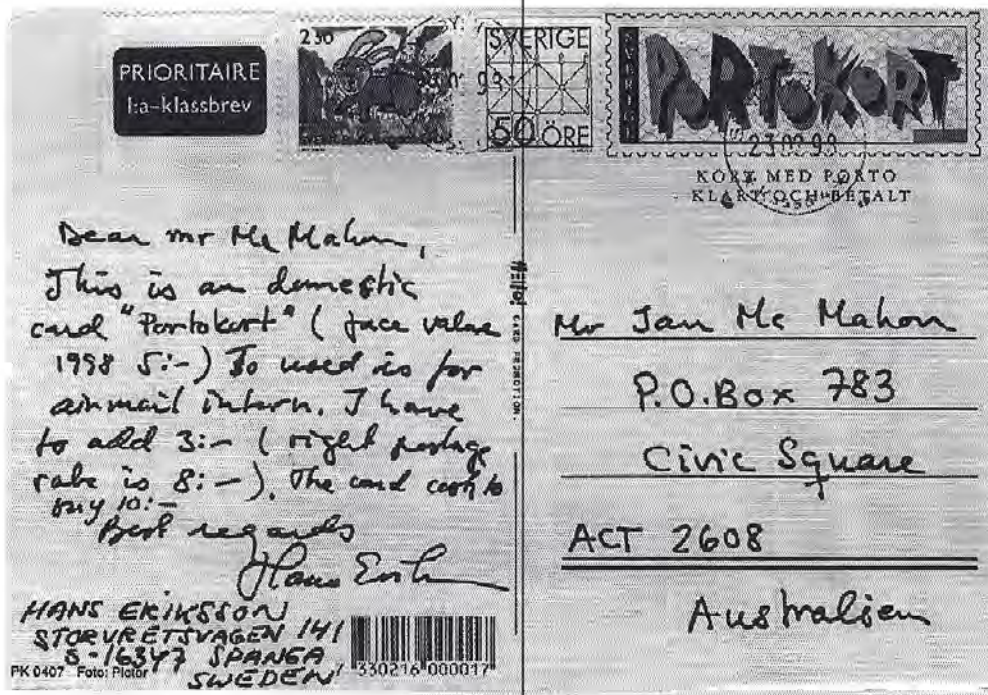 PRIORITAIRE
1:a-klassbrev
2 50
SVERIGE
50 ÖRE
SVERIGE
PORTOKORT
23 02 98
KORT MED PORTO
KLART OCH BETALT
Dear mr Mc Mahon,
This is an domestic
card "Portokort" ( face value
1998 5:-) To used is for
airmail intern. I have
to add 3:- ( right postage
rate is 8:-). The card cost to
buy 10:-
Best regards
Hans Erik
HANS ERIKSSON
STORVRETSVAGEN 141
S-16347 SPANGA
SWEDEN
PK 0407 Foto: Pictor
7 330216 000017
CARD PROMOTION.
Mr Ian Mc Mahon
P.O.Box 783
Civic Square
ACT 2608
Australien